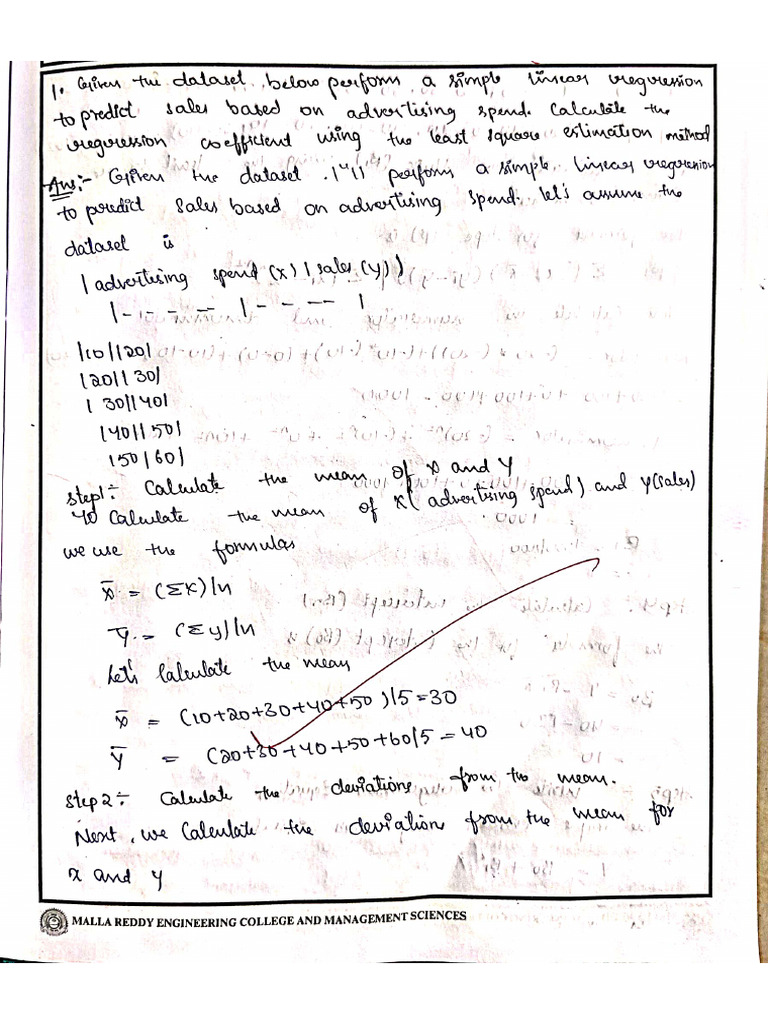 1. Given the dataset below perform a simple linear regression
to predict sales based on advertising spend. Calculate the
regression coefficient using the least square estimation method
Ans:- Given the dataset perform a simple linear regression
to predict sales based on advertising spend. let's assume the
dataset is
| advertising spend (x) | sales (y) )
|- - - - - | - - - - |
|10||20|
|20|| 30|
| 30||40|
|40|| 50|
|50|60|
step1:- Calculate the mean of x and y
Calculate the mean of x( advertising spend) and y(sales)
we use the formulas
x̄ = (Σx)/n
ȳ = (Σy)/n
Let's Calculate the mean
x̄ = (10+20+30+40+50)/5=30
ȳ = (20+30+40+50+60/5=40
step2:- Calculate the deviations from the mean.
Next, we Calculate the deviation from the mean for
x and y
MALLA REDDY ENGINEERING COLLEGE AND MANAGEMENT SCIENCES